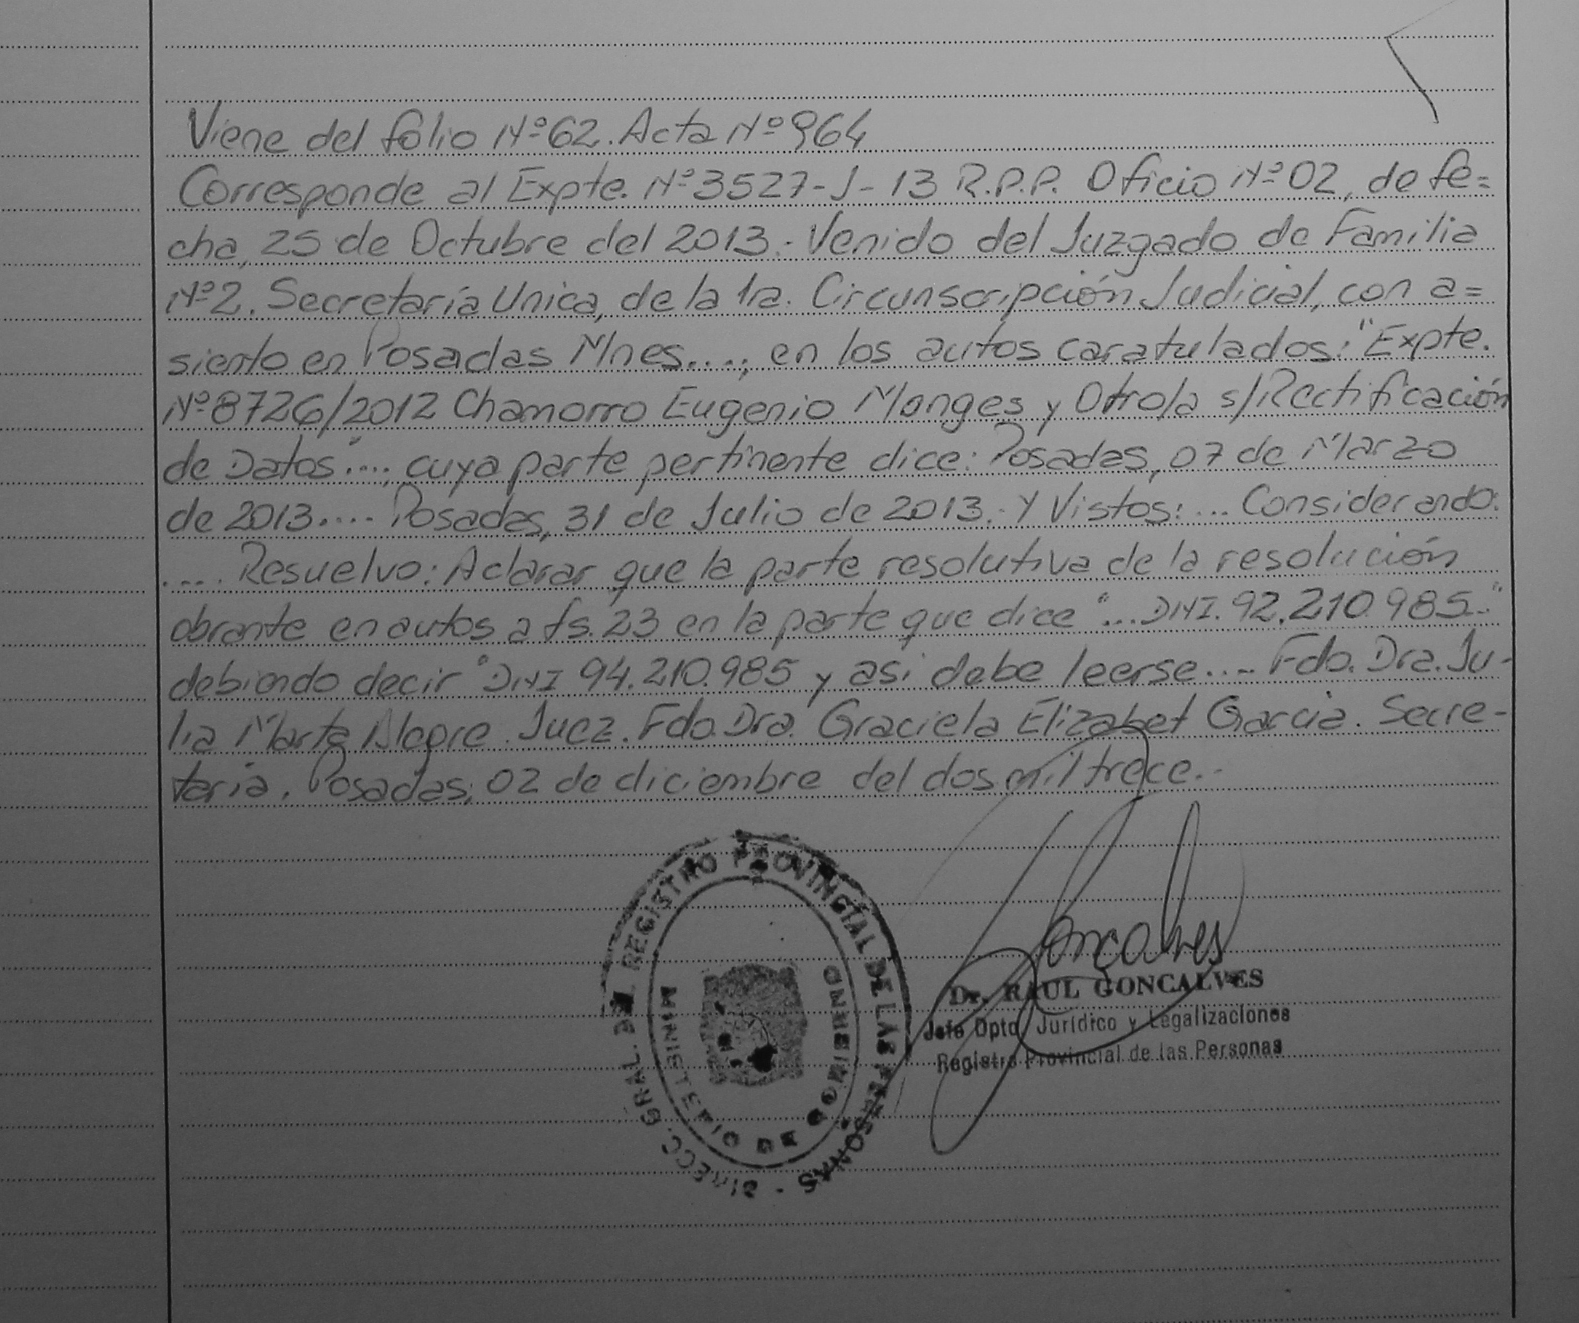 Viene del folio Nº62. Acta Nº964
Corresponde al Expte. Nº3527-J-13 R.P.P. Oficio Nº02, de fe=
cha, 25 de Octubre del 2013.- Venido del Juzgado de Familia
Nº2. Secretaría Unica, de la 1ra. Circunscripción Judicial, con a=
siento en Posadas Mnes...., en los autos caratulados: "Expte.
Nº8726/2012 Chamorro Eugenio Monges y Otro/a s/Rectificación
de Datos"...., cuya parte pertinente dice: Posadas, 07 de Marzo
de 2013.... Posadas, 31 de Julio de 2013.- Y Vistos: ... Considerando:
.... Resuelvo: Aclarar que la parte resolutiva de la resolución
obrante en autos a fs. 23 en la parte que dice "...DNI. 92.210.985..."
debiendo decir "DNI 94.210.985 y asi debe leerse.... Fdo. Dra. Ju-
lia Marta Alegre. Juez. Fdo. Dra. Graciela Elizabet Garcia. Secre-
taria. Posadas, 02 de diciembre del dos mil trece.-
DIRECC. GRAL. DEL REGISTRO PROVINCIAL DE LAS PERSONAS -
MINISTERIO DE GOBIERNO
Goncalves
Dr. RAUL GONCALVES
Jefe Dpto. Jurídico y Legalizaciones
Registro Provincial de las Personas